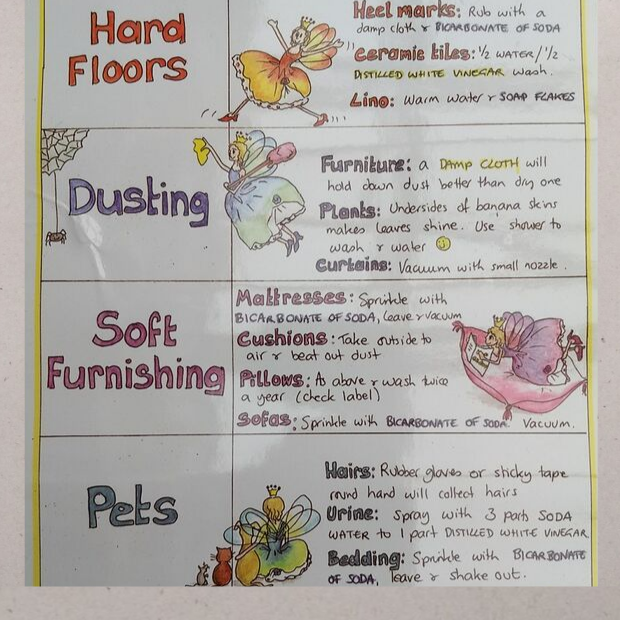 Hard
Floors
Heel marks: Rub with a
damp cloth & BICARBONATE OF SODA
Ceramic tiles: 1/2 WATER/1/2
DISTILLED WHITE VINEGAR wash.
Lino: Warm water & SOAP FLAKES
Dusting
Furniture: a DAMP CLOTH will
hold down dust better than dry one
Plants: Undersides of banana skins
makes leaves shine. Use shower to
wash & water
Curtains: Vacuum with small nozzle.
Soft
Furnishing
Mattresses: Sprinkle with
BICARBONATE OF SODA, leave & vacuum
Cushions: Take outside to
air & beat out dust
Pillows: As above & wash twice
a year (check label)
Sofas: Sprinkle with BICARBONATE OF SODA. Vacuum.
Pets
Hairs: Rubber gloves or sticky tape
round hand will collect hairs
Urine: Spray with 3 parts SODA
WATER to 1 part DISTILLED WHITE VINEGAR
Bedding: Sprinkle with BICARBONATE
OF SODA, leave & shake out.